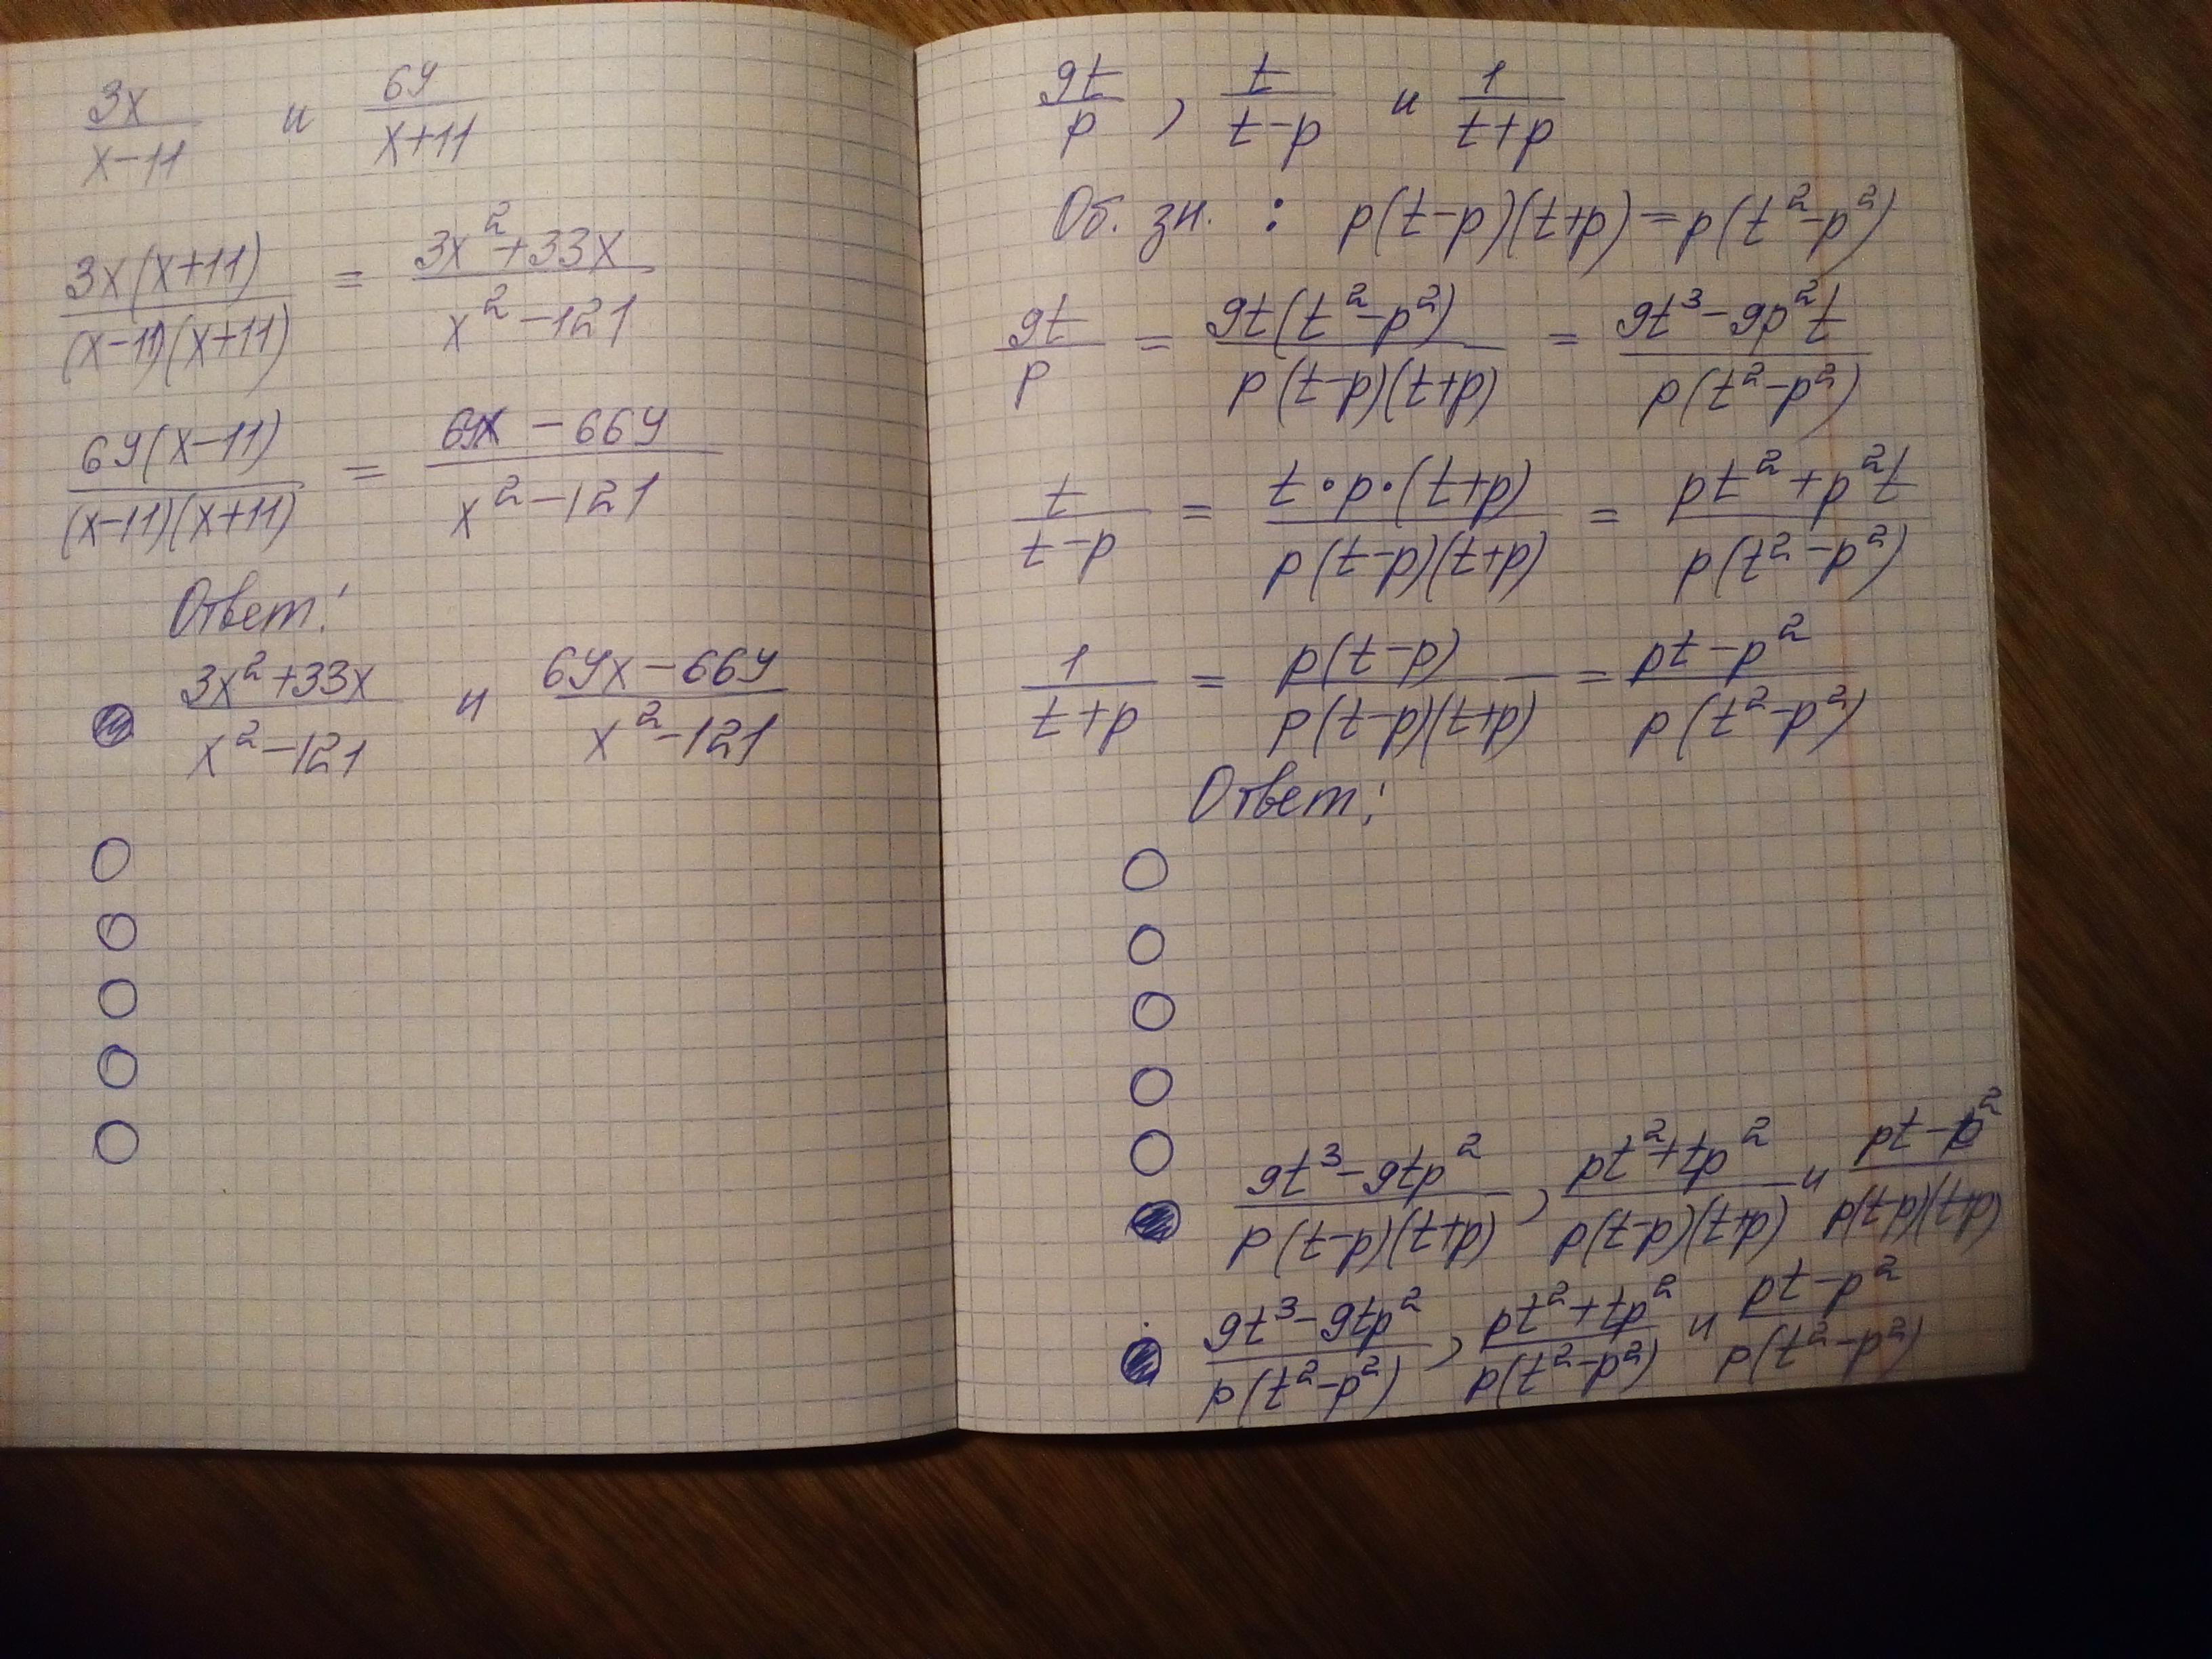 3x/(x-11) и 6y/(x+11)
3x(x+11)/((x-11)(x+11)) = (3x²+33x)/(x²-121)
6y(x-11)/((x-11)(x+11)) = (6yx-66y)/(x²-121)
Ответ:
(3x²+33x)/(x²-121) и (6yx-66y)/(x²-121)
9t/p, t/(t-p) и 1/(t+p)
Об. зн. : p(t-p)(t+p)=p(t²-p²)
9t/p = 9t(t²-p²)/(p(t-p)(t+p)) = (9t³-9p²t)/(p(t²-p²))
t/(t-p) = t·p·(t+p)/(p(t-p)(t+p)) = (pt²+p²t)/(p(t²-p²))
1/(t+p) = p(t-p)/(p(t-p)(t+p)) = (pt-p²)/(p(t²-p²))
Ответ:
(9t³-9tp²)/(p(t-p)(t+p)), (pt²+tp²)/(p(t-p)(t+p)) и (pt-p²)/(p(t-p)(t+p))
(9t³-9tp²)/(p(t²-p²)), (pt²+tp²)/(p(t²-p²)) и (pt-p²)/(p(t²-p²))